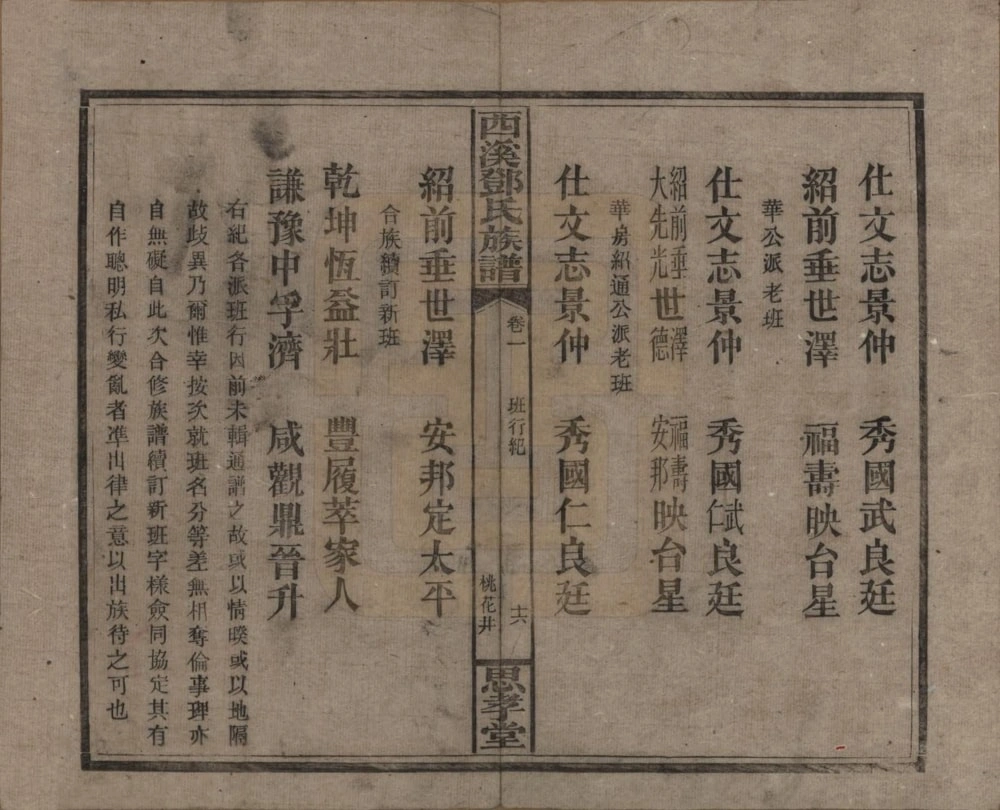 仕文志景仲 秀國武良廷
紹前垂世澤 福壽映台星
華公派老班
仕文志景仲 秀國仁武良廷
紹前垂世澤 福壽映台星
大先光世德 安那映台星
華房紹通公派老班
仕文志景仲 秀國仁良廷
西溪鄧氏族譜
卷一 班行紀
十六
桃花井
思孝堂
紹前垂世澤 安邦定太平
合族續訂新班
乾坤恆益壯 豐履萃家人
謙豫中孚濟 咸觀鼎晉升
右紀各派班行因前未輯通譜之故或以情暌或以地隔
故歧異乃爾惟幸按次就班名分等差無相奪倫事理亦
自無礙自此次合修族譜續訂新班字樣僉同協定其有
自作聰明私行變亂者準出律之意以出族待之可也